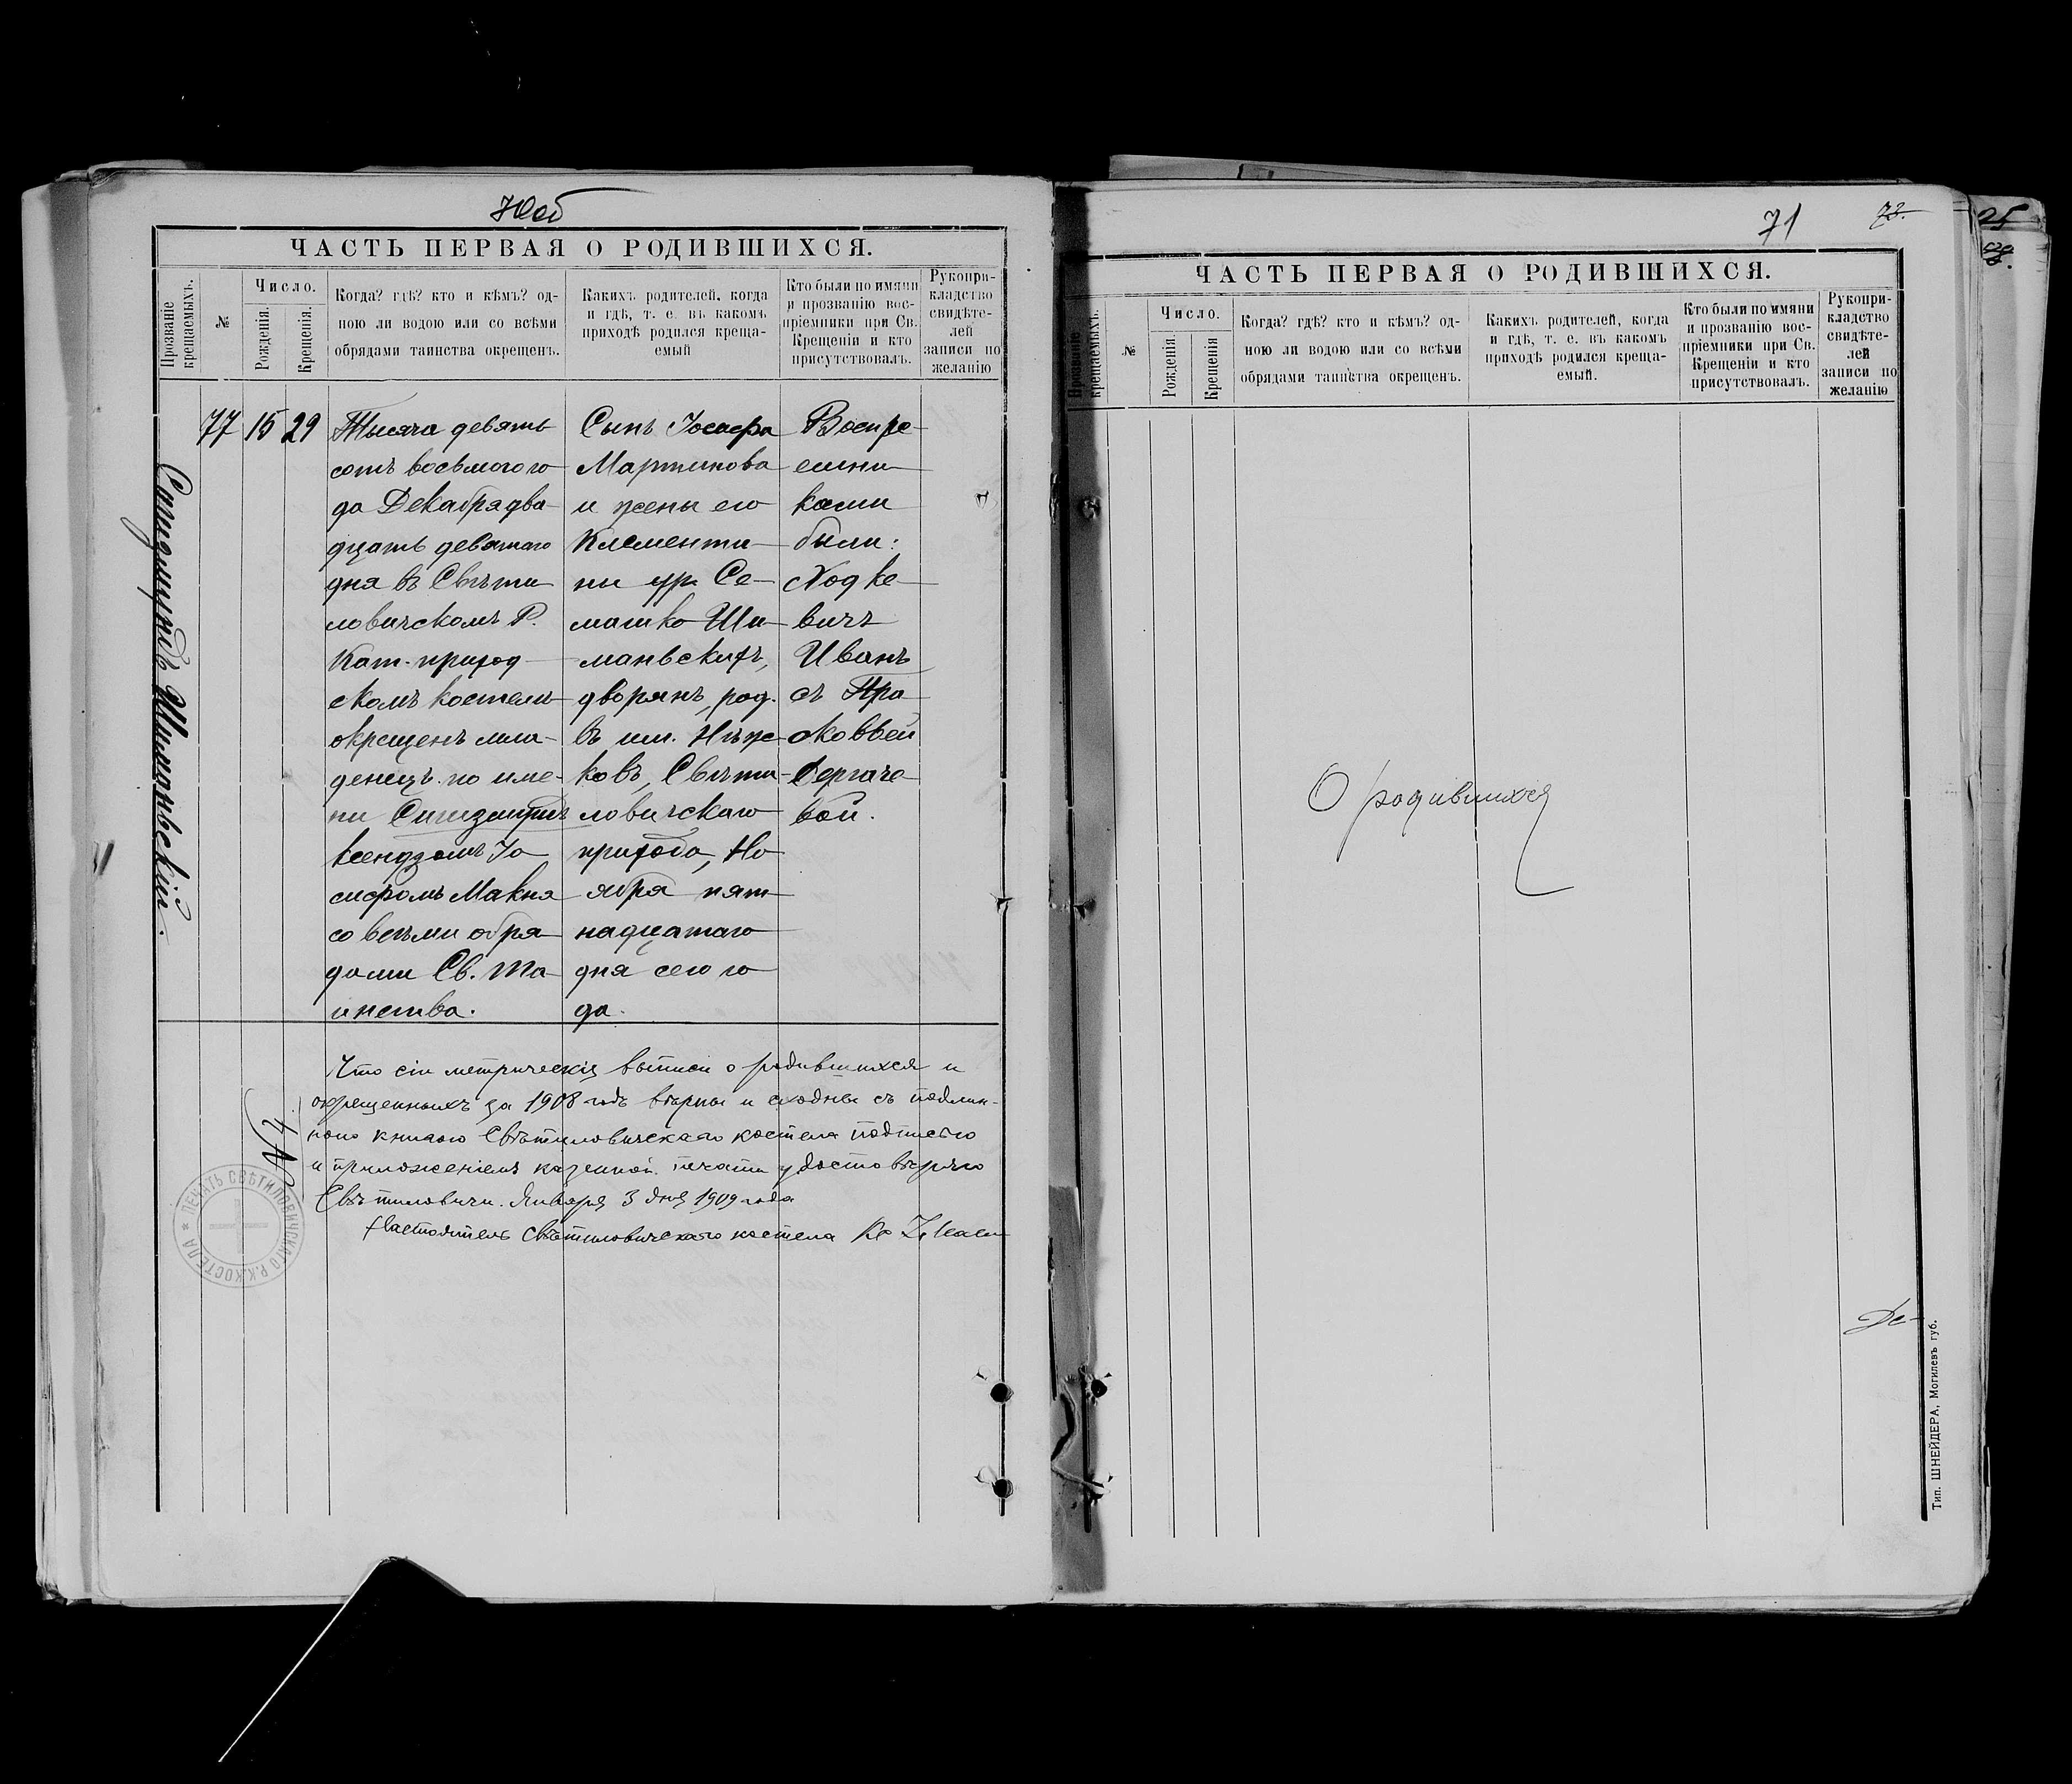 ЧАСТЬ ПЕРВАЯ О РОДИВШИХСЯ.
Прозваніе
крещаемыхъ.
№
Число.
Рожденія.
Крещенія.
Когда? гдѣ? кто и кѣмъ? од-
ною ли водою или со всѣми
обрядами таинства окрещенъ.
Какихъ родителей, когда
и гдѣ, т. е. въ какомъ
приходѣ родился креща-
емый
Кто были по имяни
и прозванію вос-
пріемники при Св.
Крещеніи и кто
присутствовалъ.
Рукопри-
кладство
свидѣте-
лей
записи по
желанію
Сигизмундъ Шиманьскій.
77 15 29
Тысяча девять
сотъ восьмого го
да Декабря два
дцать девятаго
дня въ Свѣти
ловичскомъ Р.
Кат. приход
скомъ костелѣ
окрещенъ мла-
денецъ по име-
ни Сигизмундъ
ксендзомъ Іо
сифомъ Макня
со всѣми обря
дами Св. Та
инства.
Сынъ Іосифа
Мартинова
и жены его
Клементи
ны ур. Се-
машко Ши
маньскихъ,
дворянъ, род.
въ им. Нѣж
ковъ, Свѣти-
ловичскаго
прихода, Но
ября пят
надцатаго
дня сего го
да.
Воспре
емни
ками
были:
Ходке
вичъ
Иванъ
съ Пра
сковвей
Дергаче
вой.
Что сіи метрическія выписи о родившихся и
окрещенныхъ за 1908 годъ вѣрны и сходны съ подлин-
ною книгою Свѣтиловичскаго костела подписью
и приложеніемъ казенной печати удостовѣряю
Свѣтиловичи. Января 3 дня 1909 года
Настоятель Свѣтиловичскаго костела Кс
№ 4
ПЕЧАТЬ СВѢТИЛОВИЧСКАГО Р.К.КОСТЕЛА
71
73.
25
ЧАСТЬ ПЕРВАЯ О РОДИВШИХСЯ.
Прозваніе
крещаемыхъ.
№
Число.
Рожденія.
Крещенія
Когда? гдѣ? кто и кѣмъ? од-
ною ли водою или со всѣми
обрядами таинства окрещенъ.
Какихъ родителей, когда
и гдѣ, т. е. въ какомъ
приходѣ родился креща-
емый.
Кто были по имяни
и прозванію вос-
пріемники при Св.
Крещеніи и кто
присутствовалъ.
Рукопри-
кладство
свидѣте-
лей
записи по
желанію
О родившихся
Де-
Тип. ШНЕЙДЕРА, Могилевъ губ.